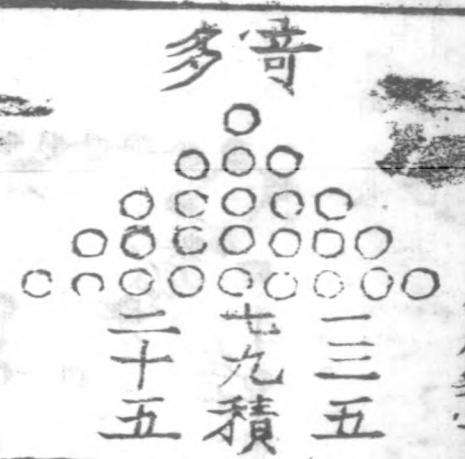 竒多
一三五
七九積
二十五